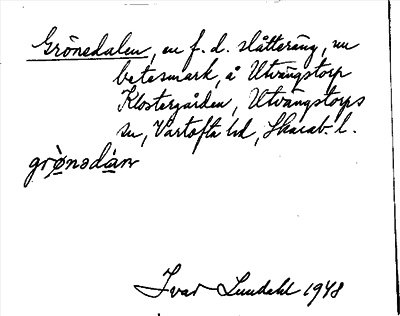 Grönedalen, en f. d. slåtteräng, nu
betesmark, å Utvängstorp
Klostergården, Utvängstorps
sn, Vartofta hd, Skarab. l.
grò̱nədà̱n
Ivar Lundahl 1948